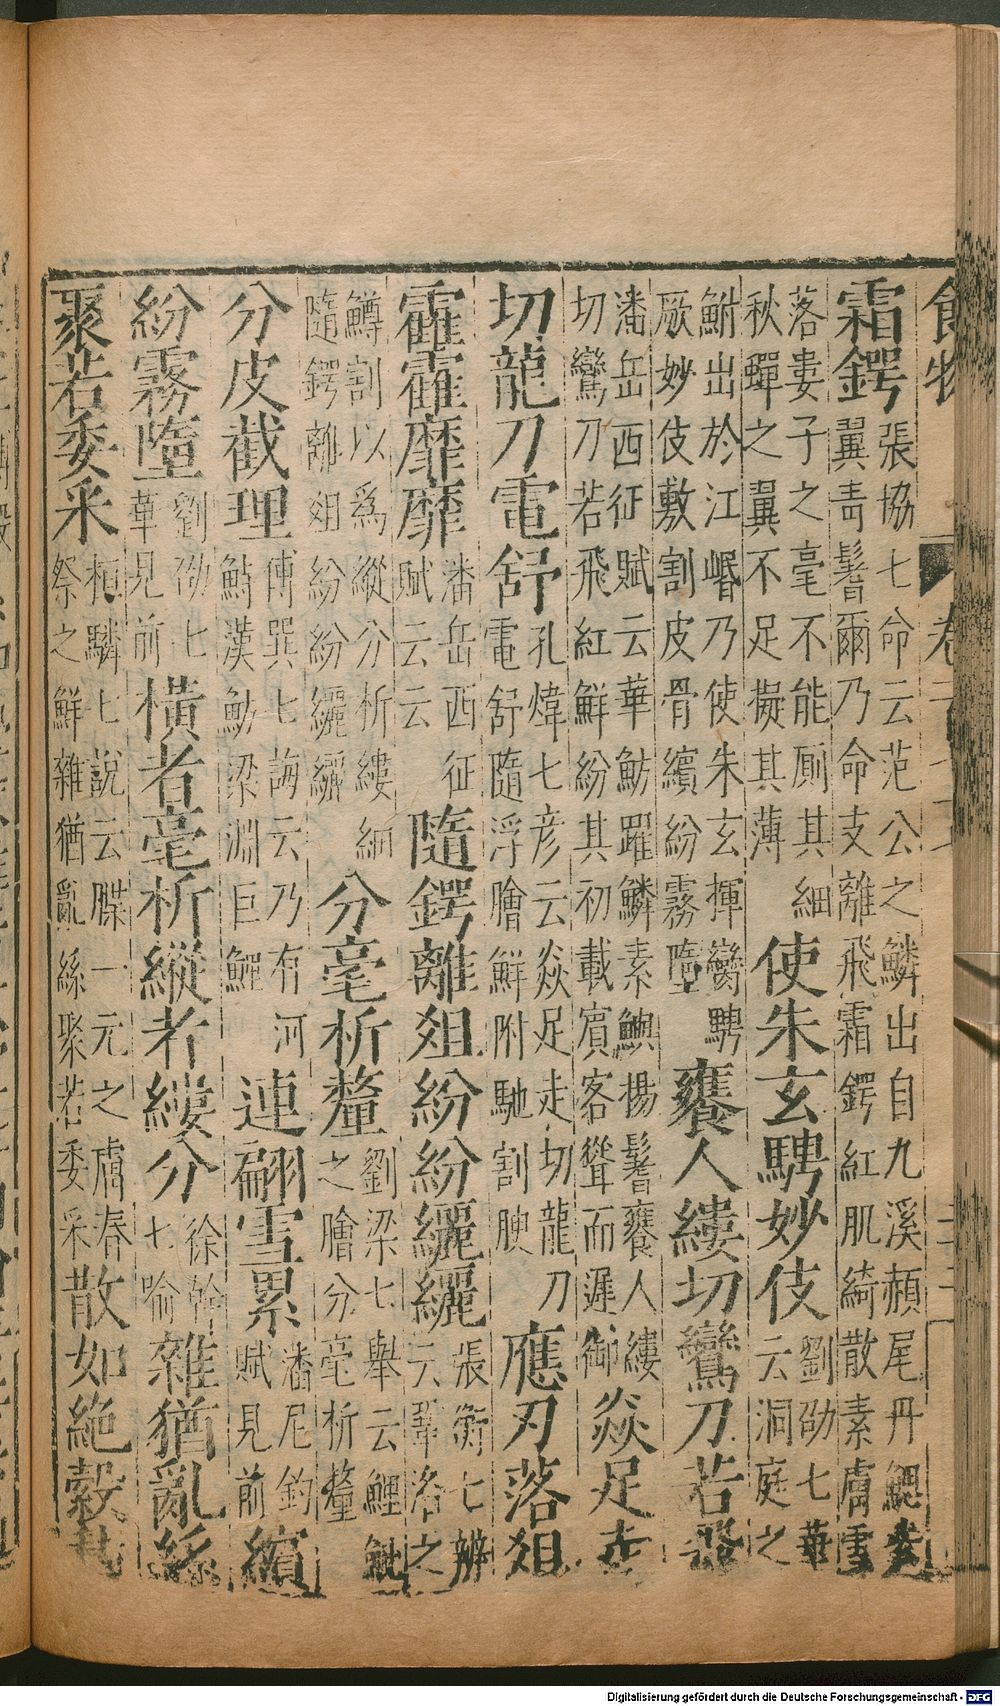 食物
霜鍔張協七命云范公之鱗出自九溪赬尾丹鰓
翼青鬐爾乃命支離飛霜鍔紅肌綺散素膚雪
落婁子之毫不能厠其細使朱玄騁妙伎劉劭七華
秋蟬之翼不足擬其薄云洞庭之
鮒出於江岷乃使朱玄揮鸞騁饔人縷切鸞刀若飛
厥妙伎敷割皮骨繽紛霧墮
潘岳西征賦云華魴躍鱗素鱮揚鬐饔人縷焱足走
切鸞刀若飛紅鮮紛其初載賓客聳而遲御
切龍刀電舒孔煒七彦云焱足走切龍刀應刃落俎
電舒隨浮膾鮮附馳割腴
霍霍靡靡潘岳西征隨鍔離俎紛紛纚纚張衡七辨
賦云云云鞏洛之
鱒割以爲縱分析縷細分毫析釐劉梁七舉云鯉
隨鍔離俎紛紛纚纚之膾分毫析釐
分皮截理傅巽七誨云乃有河連翩雪累潘尼釣繽
鮬漢魴梁淵巨鯉賦見前
紛霧墮劉劭七橫者毫析縱者縷分徐幹雜猶亂絲
華見前七喻
聚若委采桓麟七說云䐑一元之膚春散如絶縠
祭之鮮雜猶亂絲聚若委采
Digitalisierung gefördert durch die Deutsche Forschungsgemeinschaft - DFG